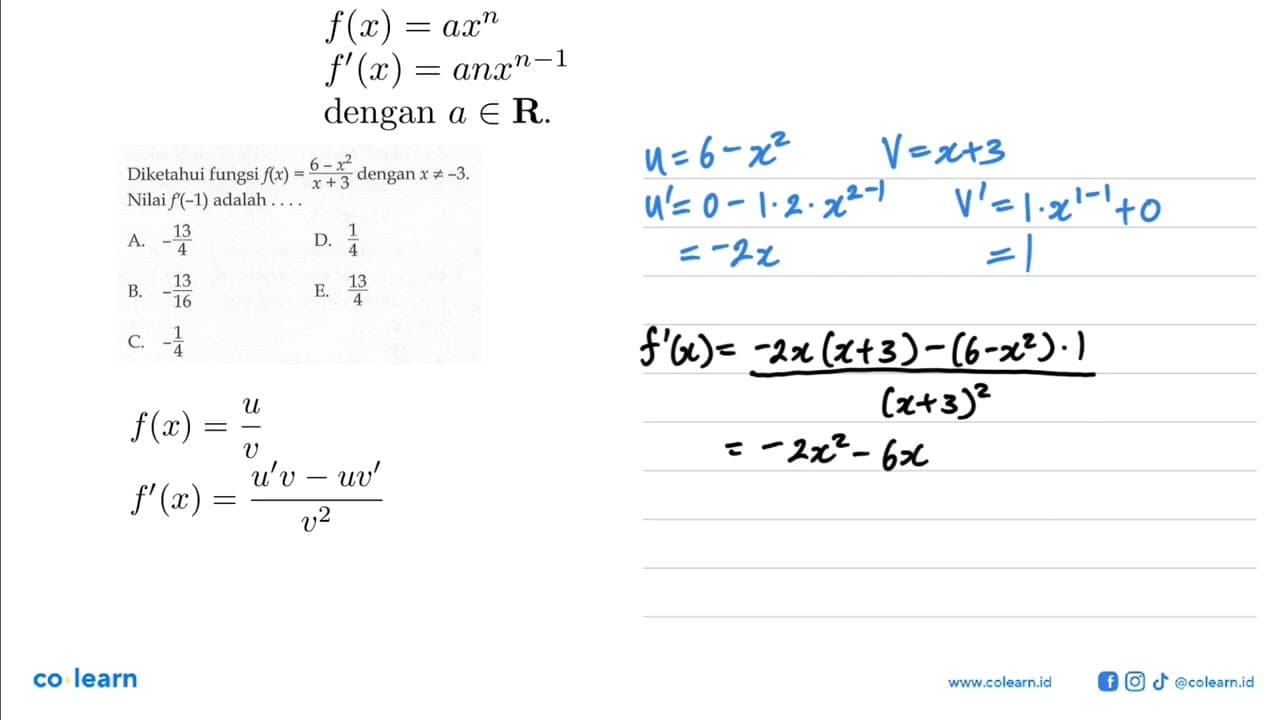 f(x) = axⁿ
f′(x) = anxⁿ⁻¹
dengan a ∈ R.
Diketahui fungsi f(x) = (6 – x²)/(x + 3) dengan x ≠ –3.
Nilai f′(–1) adalah . . . .
A. –13/4
B. –13/16
C. –1/4
D. 1/4
E. 13/4
f(x) = u/v
f′(x) = (u′v – uv′)/v²
u = 6 – x²
u' = 0 – 1·2·x²⁻¹
= –2x
V = x+3
V' = 1·x¹⁻¹+0
= 1
f'(x) = (–2x(x+3)–(6–x²)·1)/(x+3)²
= –2x² – 6x
co learn
www.colearn.id
@colearn.id